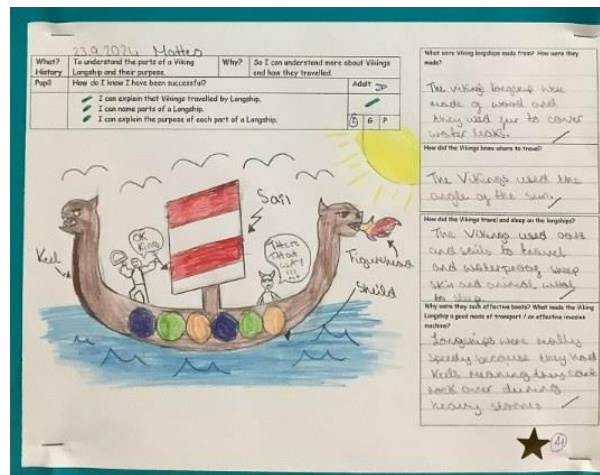 23.9.2024 Matteo
What? To understand the parts of a Viking Longship and their purpose. Why? So I can understand more about Vikings and how they travelled.
History
Pupil How do I know I have been successful? Adult
I can explain that Vikings travelled by Longship.
I can name parts of a Longship.
I can explain the purpose of each part of a Longship.
I G P
Sail
OK King
Keel
Figurehead
Sheild
What were Viking longships made from? How were they made?
The Viking longship were
made of wood and
they used fur to cover
water leaks.
How did the Vikings know where to travel?
The Vikings used the
angle of the sun.
How did the Vikings travel and sleep on the longships?
The Vikings used oars
and sails to travel
and waterproof sheep
skin and animal wool
to sleep.
Why were they such effective boats? What made the Viking Longship a good mode of transport / an effective invasion machine?
Longships were really
speedy because they had
Keels meaning they
rock over during
heavy storms